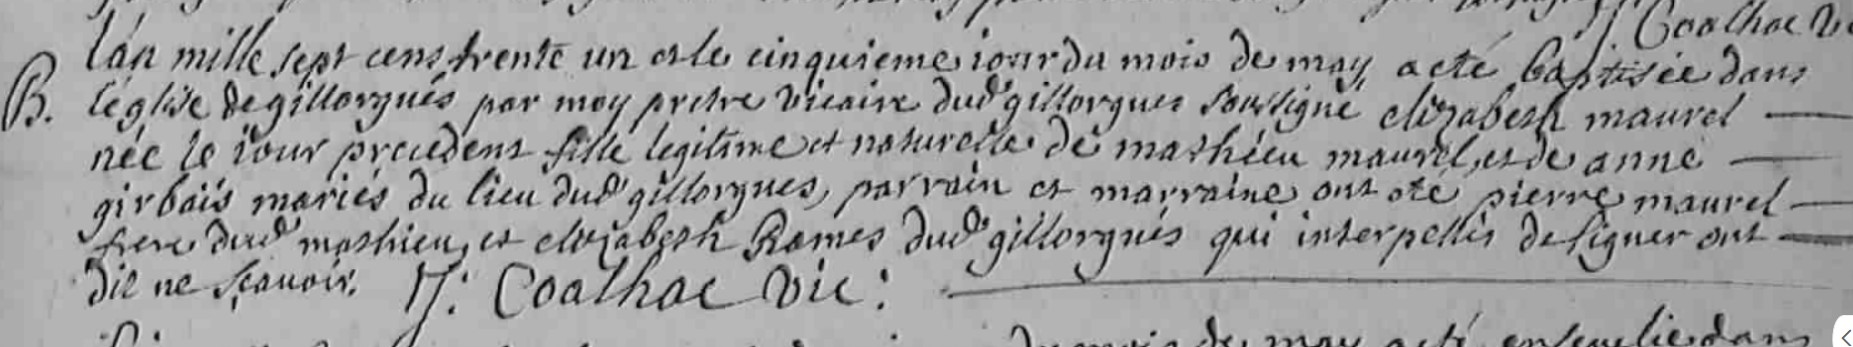 J Coalhac Vic
B. lán mille sept cens trente un et le cinquieme iour du mois de may, a eté baptisée dans
léglise de gillorgués par moy pretre vicaire dud gillorgues soussigné, elizabeth maurel
née le iour precedent fille legitime et naturelle de mathieu maurel, et de anne
girbais mariés du lieu dud gillorgues, parrain et marraine ont eté pierre maurel
frere dud mathieu, et elizabeth Rames dud gillorgués qui interpellés de signer ont
dit ne sçavoir. J: Coalhac vic:
du mois de may a eté ensevelie dans